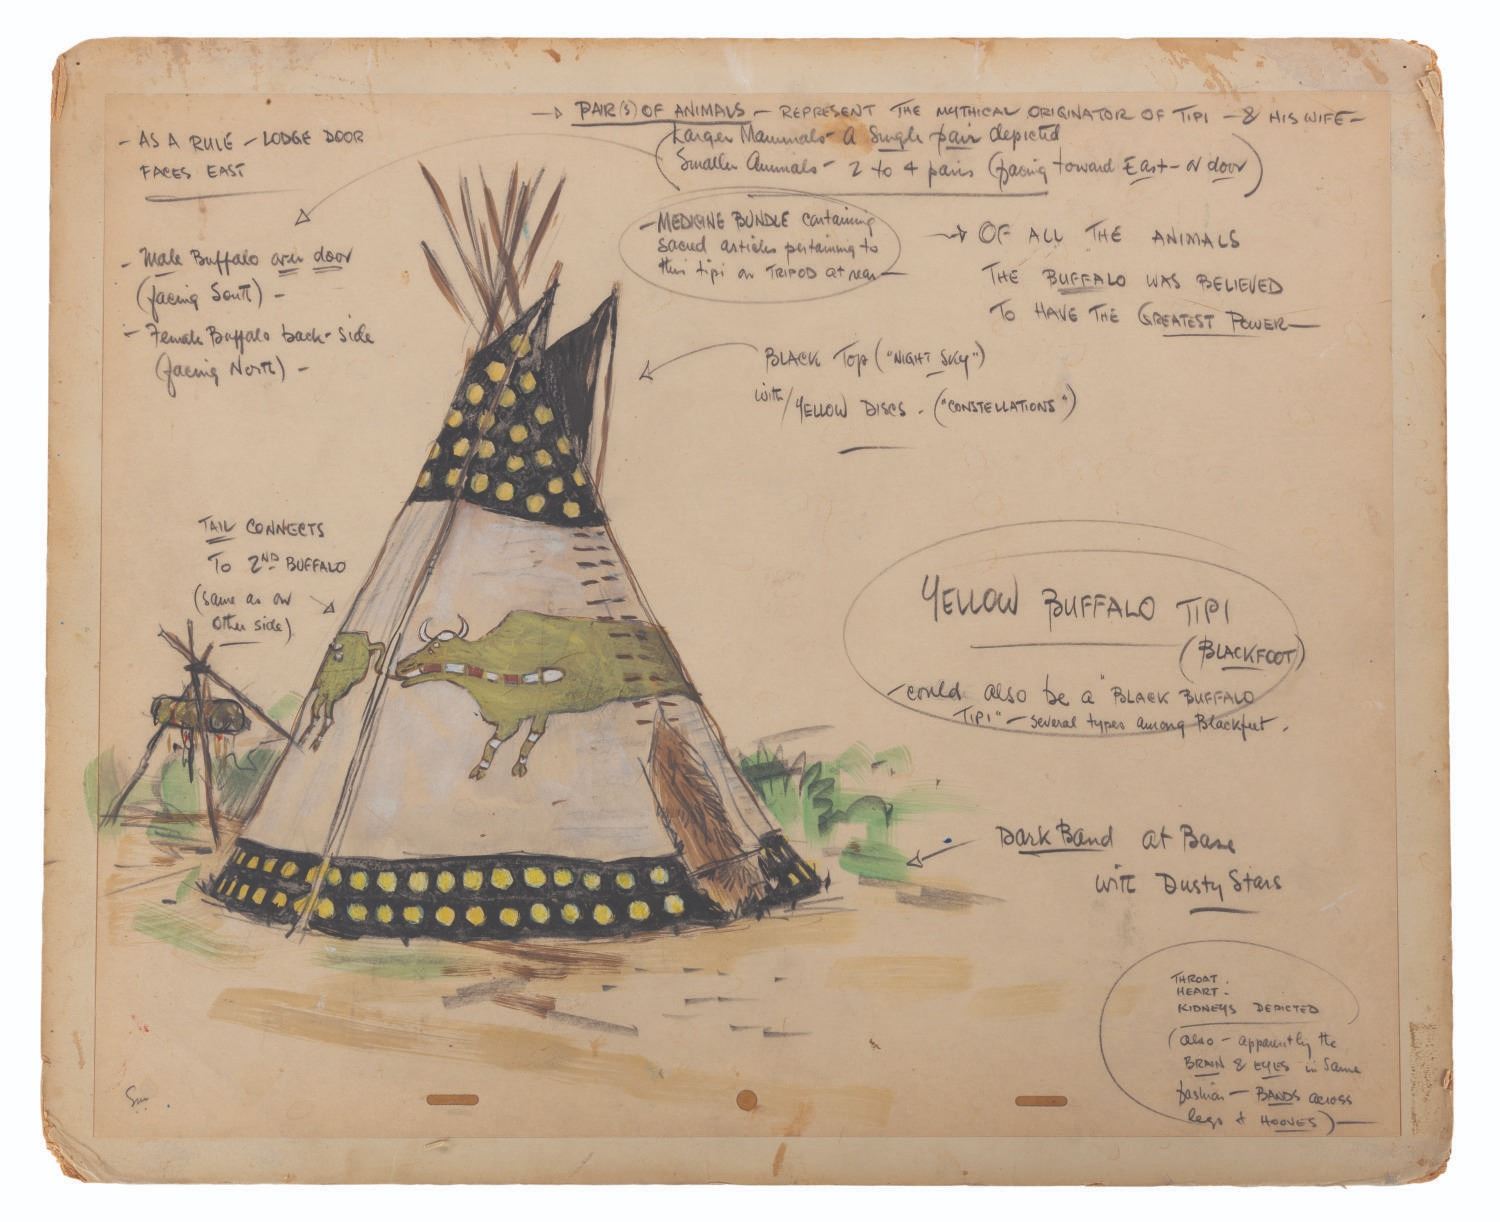 → PAIR(S) OF ANIMALS – REPRESENT THE MYTHICAL ORIGINATOR OF TIPI – & HIS WIFE –
(Larger Mammals – A Single pair depicted
Smaller Animals – 2 to 4 pairs (facing toward East – or door)
- AS A RULE – LODGE DOOR
FACES EAST
- Male Buffalo over door
(facing South) –
- Female Buffalo back-side
(facing North) –
- MEDICINE BUNDLE containing
sacred articles pertaining to
this tipi on TRIPOD at rear –
→ OF ALL THE ANIMALS
THE BUFFALO WAS BELIEVED
TO HAVE THE GREATEST POWER –
BLACK TOP ("NIGHT SKY")
with/YELLOW DISCS - ("CONSTELLATIONS")
TAIL CONNECTS
TO 2ND BUFFALO
(same as on
other side)
YELLOW BUFFALO TIPI
(BLACKFOOT)
- could also be a "BLACK BUFFALO
TIPI" – several types among Blackfeet.
Dark Band at Base
with Dusty Stars
THROAT.
HEART -
KIDNEYS DEPICTED
(also – apparently the
BRAIN & EYES in same
fashion – BANDS across
legs & HOOVES) –